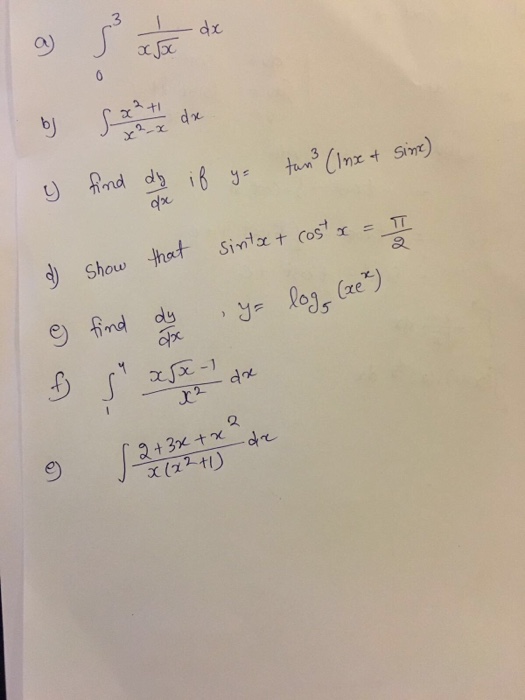 a) ∫₀³ 1/(x√x) dx
b) ∫ (x²+1)/(x²-x) dx
c) find dy/dx if y= tan³(lnx + sinx)
d) Show that sin⁻¹x + cos⁻¹x = π/2
e) find dy/dx , y= log₅(xeˣ)
f) ∫₁⁴ (x√x-1)/x² dx
g) ∫ (2+3x+x²)/(x(x²+1)) dx